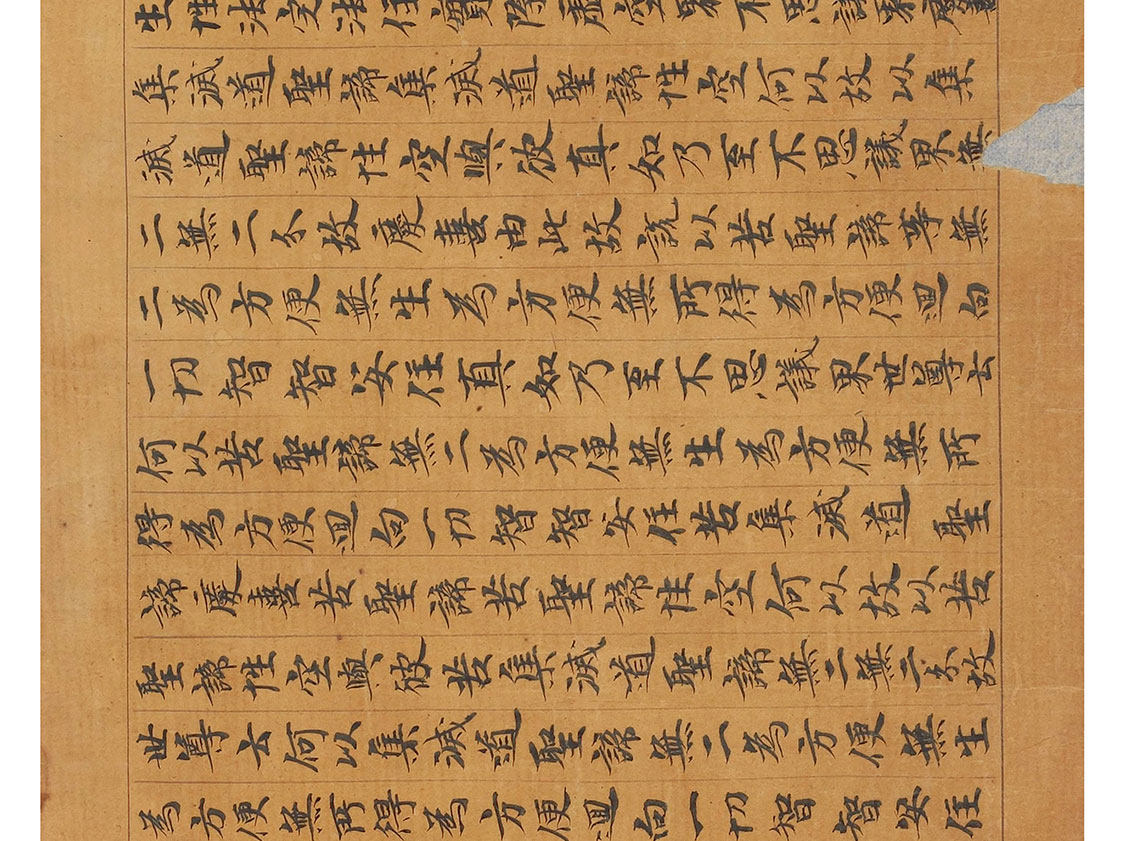 生性法定法住實際虛空界不思議界慶喜
集滅道聖諦集滅道聖諦性空何以故以集
滅道聖諦性空與彼真如乃至不思議界無
二無二分故慶喜由此故說以苦聖諦等無
二為方便無生為方便無所得為方便迴向
一切智智安住真如乃至不思議界世尊云
何以苦聖諦無二為方便無生為方便無所
得為方便迴向一切智智安住苦集滅道聖
諦慶喜苦聖諦苦聖諦性空何以故以苦
聖諦性空與彼苦集滅道聖諦無二無二分故
世尊云何以集滅道聖諦無二為方便無生
為方便無所得為方便迴向一切智智安住